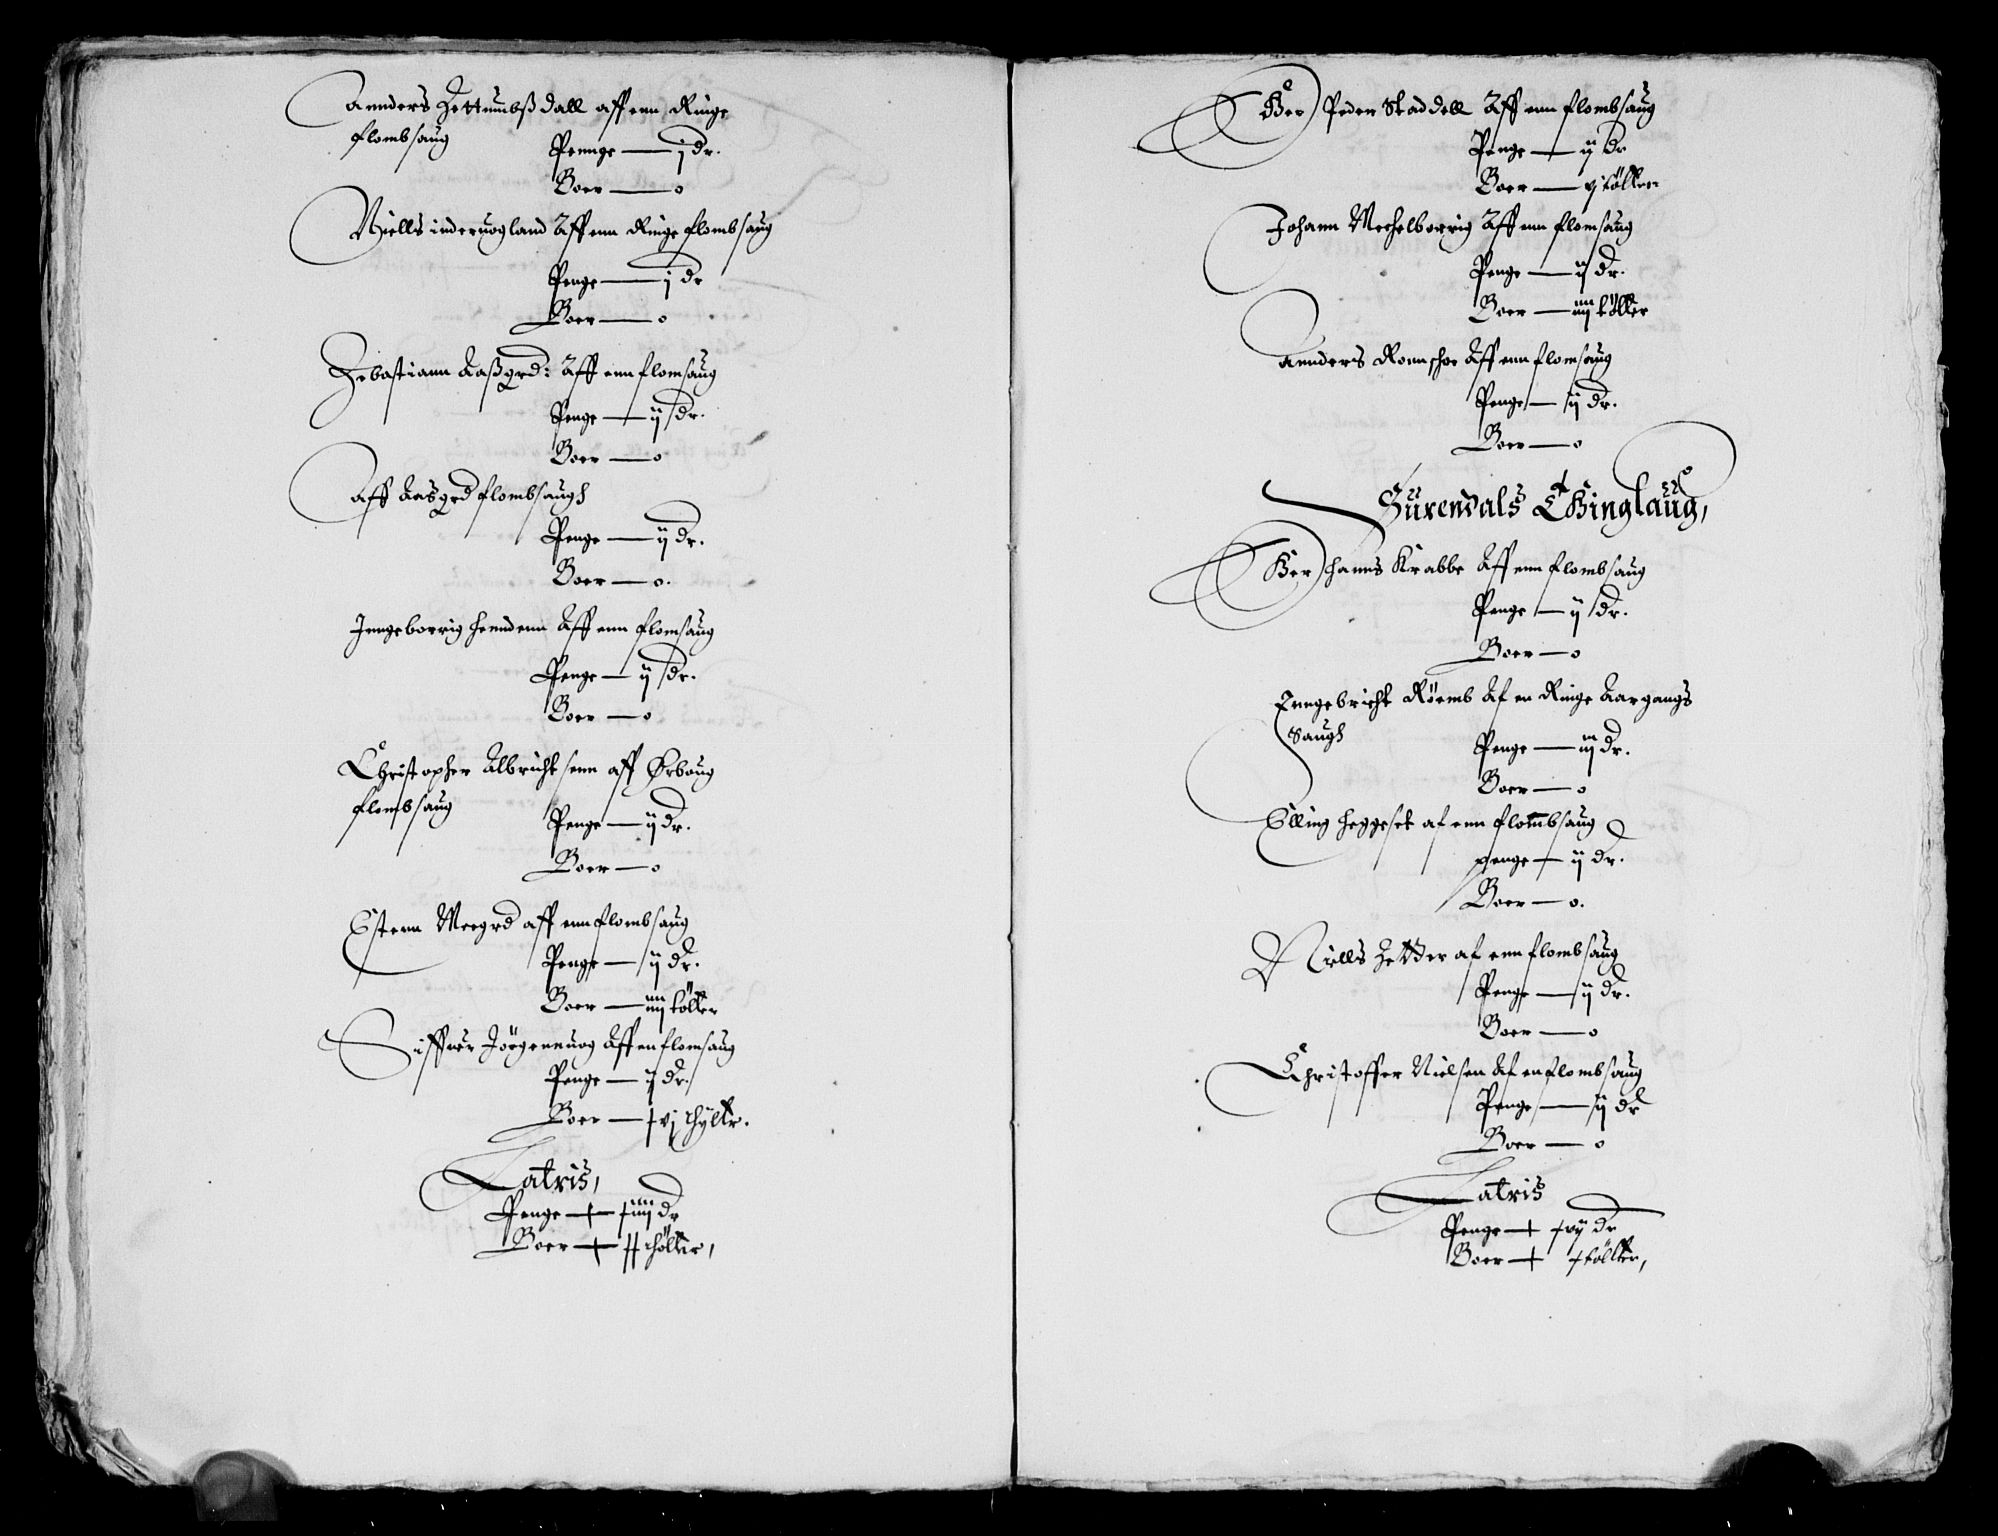 Annders Zettumbßdall aff enn Ringe
flombsaug
Pennge — j dr.
Boer — o
Niells indervogland Aff enn Ringe flombsaug
Penge — j dr
Boer — o
Sebastiann Aaßgrd: Aff enn flomsaug
Penge — ij dr.
Boer — o
Aff Aasgrd flombsaugh
Penge — ij dr.
Boer — o.
Inngeborrig henndenn Aff enn flomsaug
Penge — ij dr.
Boer — o
Christopher Albrichtsenn aff Ørboug
flombsaug
Penge — ij dr.
Boer — o
Estenn Meegrd aff enn flombsaug
Penge — ij dr.
Boer — iiij tölter
Siffuer Jörgenuog Aff en flomsaug
Penge — ij dr.
Boer — xvj thyltr.
Latris,
Penge — xiiij dr
Boer — xx thölter,
Her Peder Staddell Aff enn flombsaug
Penge — ij dr
Boer — vj tölter
Johann Mechelborrig Aff enn flomsaug
Penge — ij dr.
Boer — iiij tölter
Annders Romschoe Aff enn flomsaug
Penge — ij dr.
Boer — o
Surendals Thinglaug,
Her hanns Krabbe Aff enn flombsaug
Penge — ij dr.
Boer — o
Inngebricht Röemb Af en Ringe Aargangs
saugh
Penge — iij dr.
Boer — o
Elling heggeset af enn flombsaug
penge — ij dr.
Boer — o.
Niells Zetter af enn flombsaug
Penge — ij dr.
Boer — o
Christoffer Nielsen Af en flombsaug
Penge — ij dr
Boer — o
Latris
Penge — xvij dr
Boer — x tölter,